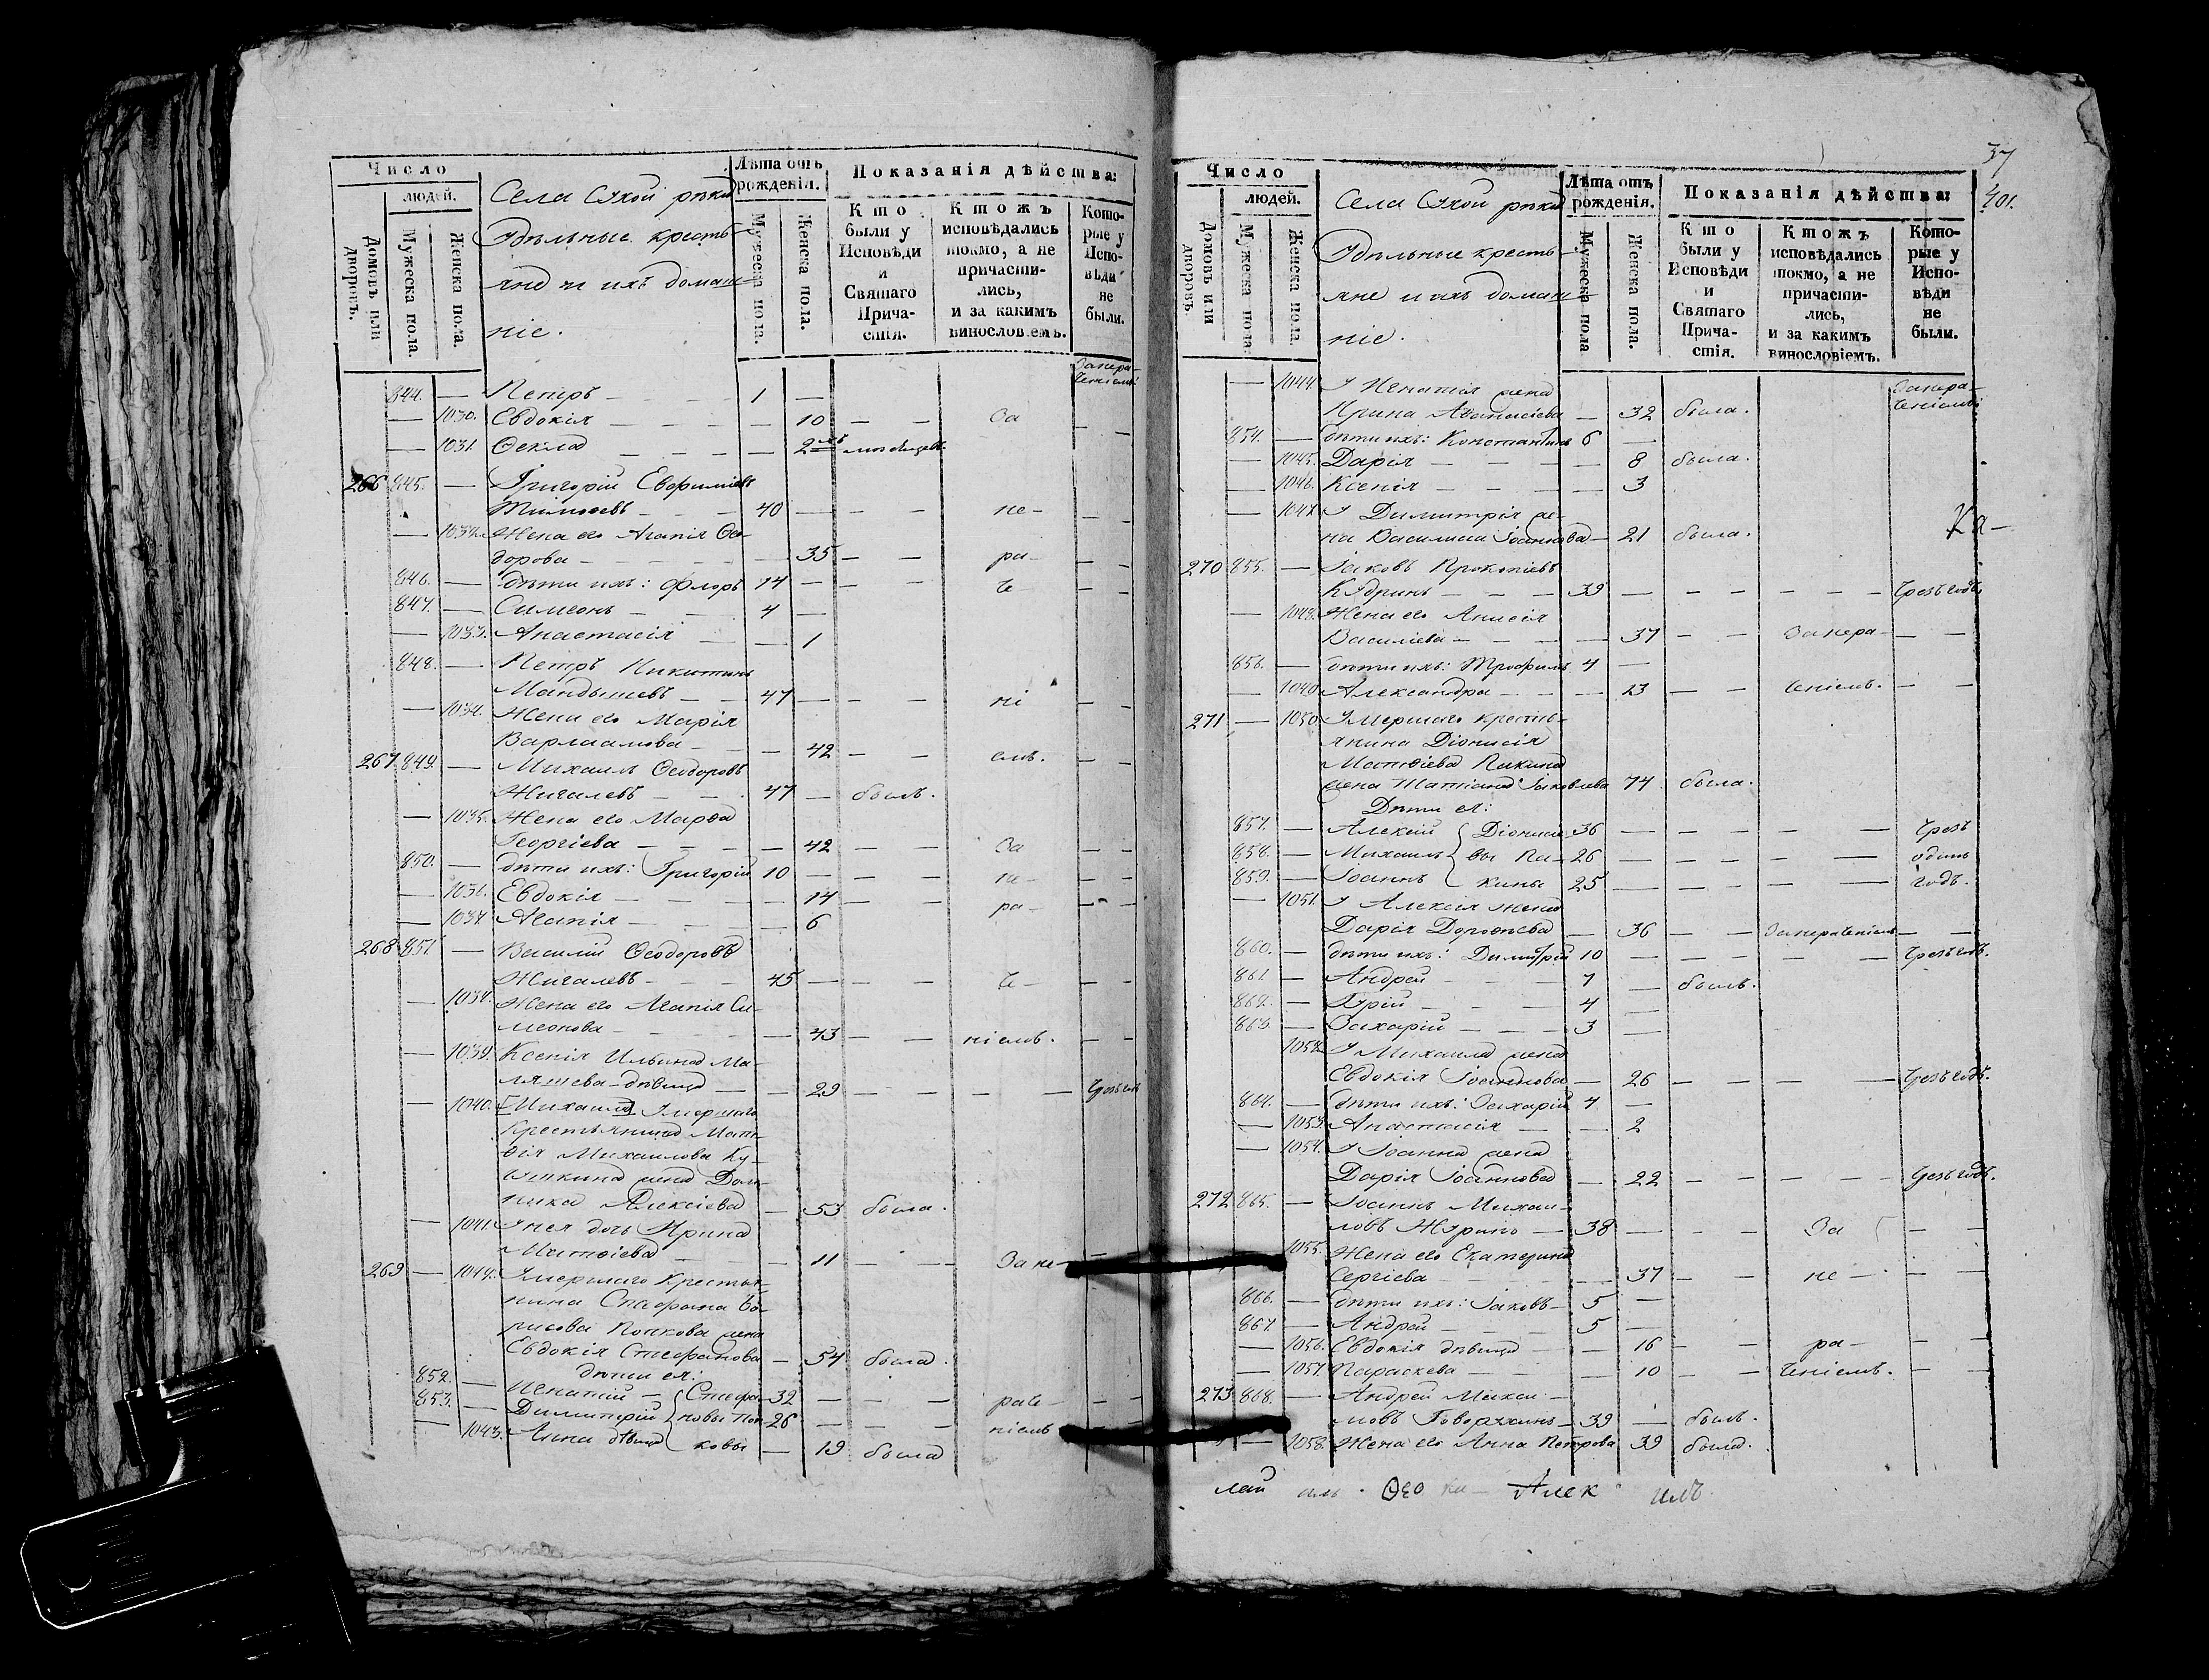 Число
людей.
Домовъ или дворовъ.
Мужеска пола.
Женска пола.
Села Сухой рѣки
Удѣльные кресть-
яне и ихъ домаш-
ніе.
Лѣта отъ рожденія.
Мужеска пола.
Женска пола.
Показанія дѣйства:
Кто были у Исповѣди и Святаго Причастія.
Ктожъ исповѣдались токмо, а не причасти-лись, и за какимъ винословіемъ.
Кото-рые у Испо-вѣди не были.
844. — Петръ — 1 —
— 1030. Евдокія — 10 — — За
— 1031. Ѳекла — 2 мѣсяцевъ
266 845. — Григорій Евфиміевъ
40 — — не-
— Жена его Агапія Ѳео-
дорова — 35 — — ра-
846. — дѣти ихъ: Флоръ 14 — — че-
847. — Симеонъ — 4 —
— 1033. Анастасія — 1
848. — Петръ Никитинъ
47 — — ні
— 1034. Жена его Марія
Варлаамова — 42 — — емъ.
267 849. — Михаилъ Ѳеодоровъ
Жигалевъ — 47 — былъ.
— 1035. Жена его Марѳа
Георгіева — 42 — — За
850. — дѣти ихъ: Григорій 10 — — не-
— 1036. Евдокія — 14 — — ра-
— 1037. Агапія — 6
268 851. — Василій Ѳеодоровъ
Жигалевъ — 45 — — че-
— 1038. Жена его Агапія Си-
меонова — 43 — — ніемъ.
— 1039. Ксенія Ильина Ма-
— дѣвица — 29 — — —
— 1040. Умершаго
Крестьянина Мат-
ѳія Михаилова Ку-
жена Дом-
ника Алексіева — 53 была.
— 1041. У нея дочь Ирина
Матѳіева — 11 — — За не-
269 — 1042. Умершаго Крестья-
нина Стефана Бо-
рисова Попкова жена
Евдокія Стефанова — 54 была.
дѣти ея:
852. — Игнатій — Стефа- 32 — — раче-
853. — Димитрій новы Поп- 26 — — ніемъ
— 1043. Анна дѣвица ковы — 19 была
37
401.
Число
людей.
Домовъ или дворовъ.
Мужеска пола.
Женска пола.
Села Сухой рѣки
Удѣльные кресть-
яне и ихъ домаш-
ніе.
Лѣта отъ рожденія.
Мужеска пола
Женска пола.
Показанія дѣйства:
Кто были у Исповѣди и Святаго Прича-стія.
Ктожъ исповѣдались токмо, а не причасти-лись, и за какимъ винословіемъ.
Кото-рые у Испо-вѣди не были.
— 1044. У Игнатія жена
Ирина Аѳанасіева — 32 была.
854. — дѣти ихъ: Константинъ 6 —
— 1045. Дарія — 8 была.
— 1046. Ксенія — 3
— 1047. У Димитрія же-
на Василиса Іоаннова — 21 была.
270 855. — Іаковъ Прокопіевъ
Кудринъ — 39 — — — чрезъ годъ.
— 1048. Жена его Анисія
Василіева — 37 — — За нера-
856. — дѣти ихъ: Трофимъ 4 —
— 1049. Александра — 13 — — ченіемъ.
271 — 1050. Умершаго кресть-
янина Діонисія
Матѳіева Пакина
жена Татіана Іаковлева 74 была.
Дѣти ея:
857. — Алексій Діонисіе- 36 — — — чрезъ
858. — Михаилъ вы Па- 26 — — — одинъ
859. — Іоаннъ кины 25 — — — годъ.
— 1051. У Алексія жена
Дарія Дороѳеева — 36 — — За нераченіемъ
860. — дѣти ихъ: Димитрій 10 — — — чрезъ годъ.
861. — Андрей — 7 — былъ.
862. — Гурій — 4 —
863. — Захарій — 3 —
1052. У Михаила жена
Евдокія Іоаннова — 26 — — — чрезъ годъ.
864. — дѣти ихъ: Захарій 4 —
— 1053. Анастасія — 2
— 1054. У Іоанна жена
Дарія Іоаннова — 22 — — — чрезъ годъ.
272 865. — Іоаннъ Михаи-
ловъ — 38 — — За
1055. Жена его Екатерина
Сергіева — 37 — — не —
866. — дѣти ихъ: Іаковъ — 5 —
867. — Андрей — 5 —
— 1056. Евдокія дѣвица — 16 — — ра-
— 1057. Параскева — 10 — — ченіемъ.
273 868. — Андрей Михаи-
ловъ — 39 — былъ.
— 1058. Жена его Анна Петрова 39 была.